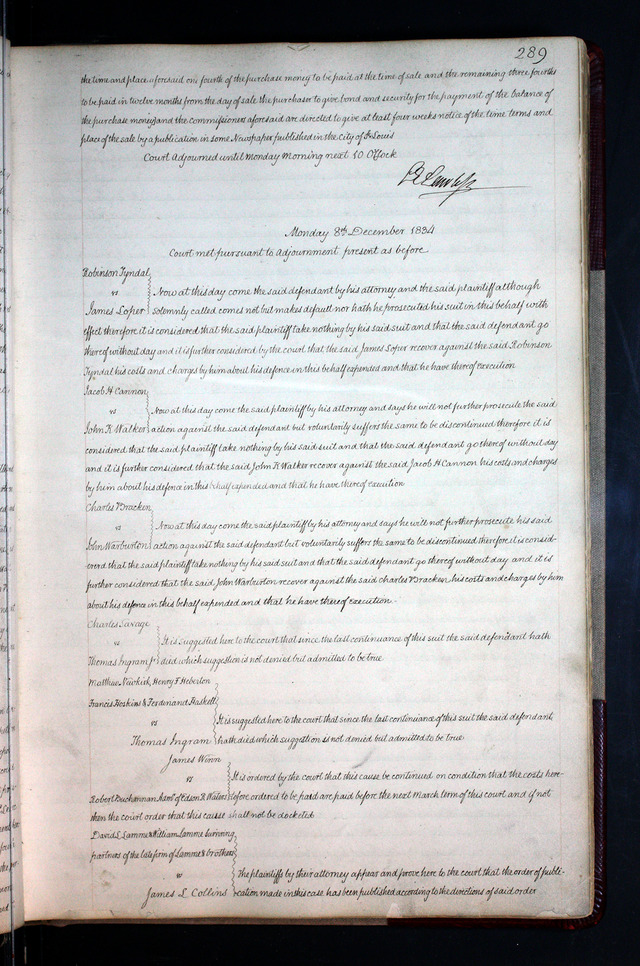 289
the time and place aforesaid one fourth of the purchase money to be paid at the time of sale and the remaining three fourths
to be paid in twelve months from the day of sale the purchaser to give bond and security for the payment of the balance of
the purchase money and the commissioners aforesaid are directed to give at least four weeks notice of the time terms and
place of the sale by a publication in some Newspaper published in the City of St Louis
Court Adjourned until Monday Morning next 10 O'Clock
Monday 8th December 1834
Court met pursuant to Adjournment present as before
Robinson Tyndal
vs Now at this day come the said defendant by his attorney and the said plaintiff although
James Loper solemnly called comes not but makes default nor hath he prosecuted his suit in this behalf with
effect therefore it is considered that the said plaintiff take nothing by his said suit and that the said defendant go
thereof without day and it is further considered by the court that the said James Loper recover against the said Robinson
Tyndal his costs and charges by him about his defence in this behalf expended and that he have thereof execution
Jacob H Cannon
vs Now at this day come the said plaintiff by his attorney and says he will not further prosecute the said
John K Walker action against the said defendant but voluntarily suffers the same to be discontinued therefore it is
considered that the said plaintiff take nothing by his said suit and that the said defendant go thereof without day
and it is further considered that the said John K Walker recover against the said Jacob H Cannon his costs and charges
by him about his defence in this behalf expended and that he have thereof execution
Charles Bracken
vs Now at this day come the said plaintiff by his attorney and says he will not further prosecute his said
John Warburton action against the said defendant but voluntarily suffers the same to be discontinued therefore it is consid-
ered that the said plaintiff take nothing by his said suit and that the said defendant go thereof without day and it is
further considered that the said John Warburton recover against the said Charles Bracken his costs and charges by him
about his defence in this behalf expended and that he have thereof execution
Charles Savage
vs It is suggested here to the court that since the last continuance of this suit the said defendant hath
Thomas Ingram Jr died which suggestion is not denied but admitted to be true
Matthew Newkirk, Henry F Heberton
Francis Hoskins & Ferdinand Haskell
vs It is suggested here to the court that since the last continuance of this suit the said defendant,
Thomas Ingram hath died which suggestion is not denied but admitted to be true
James Winn
vs It is ordered by the court that this cause be continued on condition that the costs here-
Robert Buchannan Admr of Edson R Waters tofore ordered to be paid are paid before the next March term of this court and if not
then the court order that this cause shall not be docketed
David L Lamme & William Lamme surviving
partners of the late firm of Lamme & brothers
vs The plaintiffs by their attorney appear and prove here to the court that the order of publi-
James L Collins cation made in this case has been published according to the directions of said order